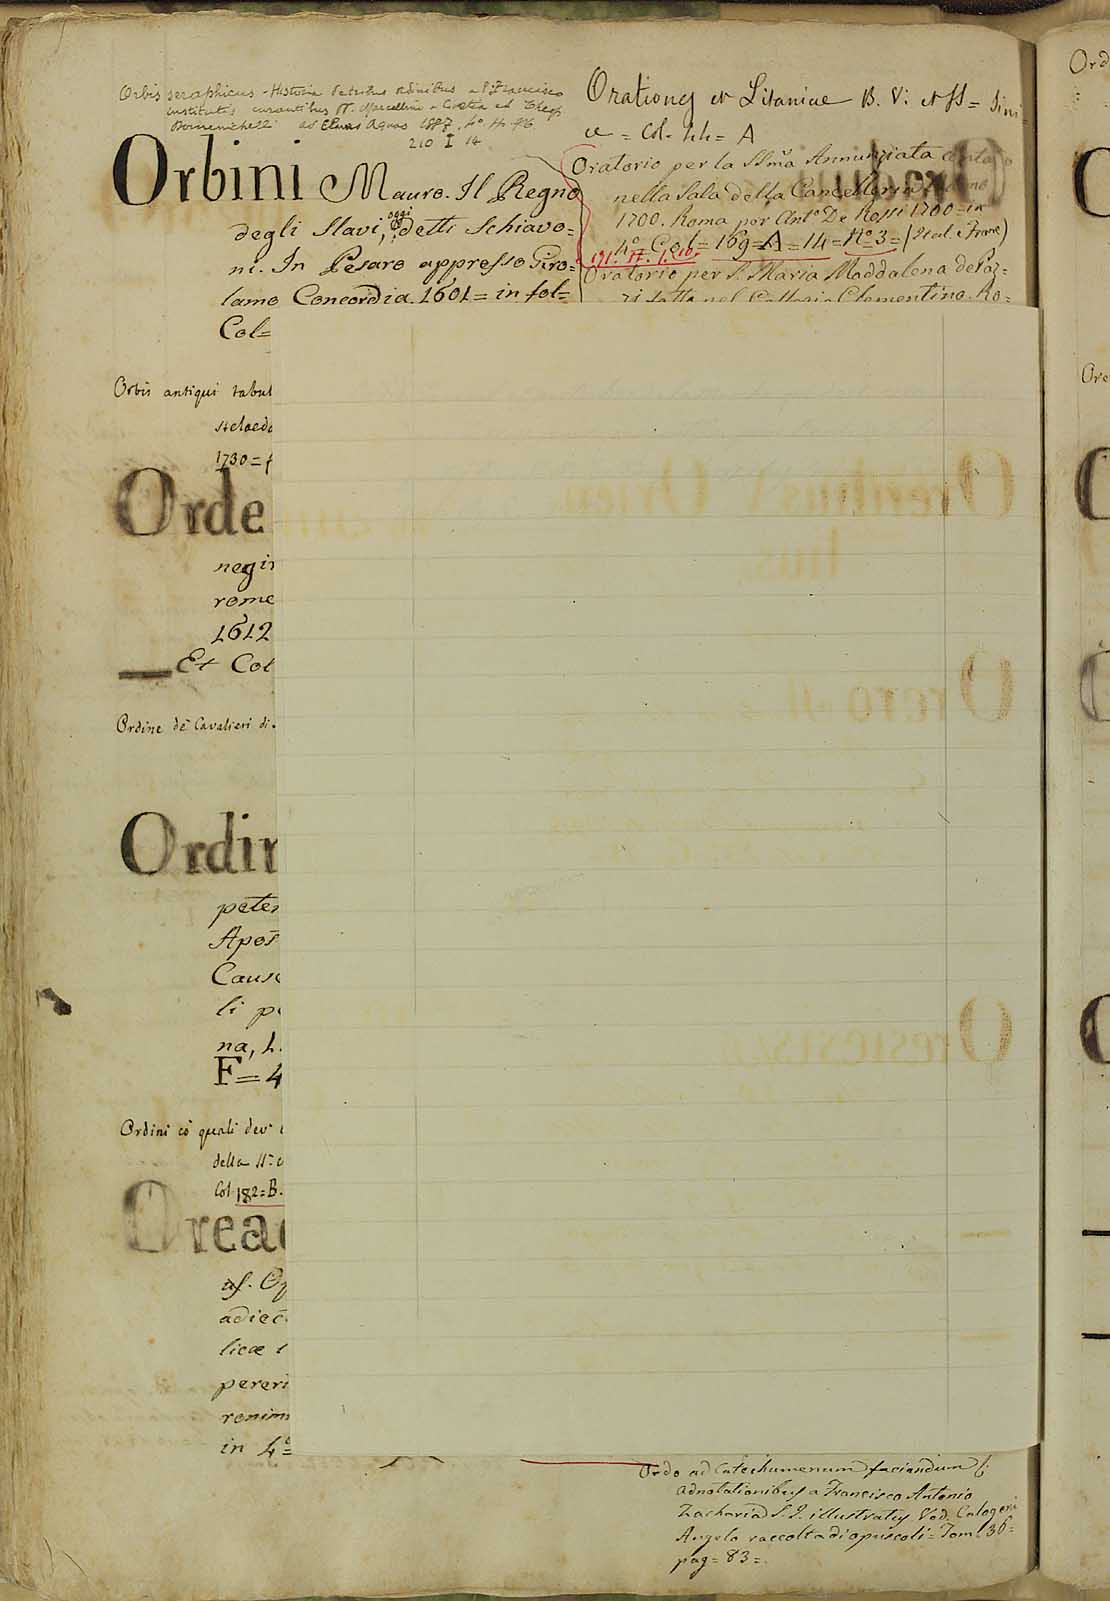 Orbis seraphicus - Historia de tribus ordinibus a S. Francisco
institutis curantibus PP. Marcellino a Civetia et Theop.
Domenichelli ad Claras Aquas 1887. 4° H. 96.
210 I 14
Orbini Mauro. Il Regno
degli Slavi, oggi detti Schiavo=
ni. In Pesaro appresso Giro=
lamo Concordia. 1601 = in fol=
Col=
Orbis antiqui tabul
1730 = f
Orde
negir
rome
1612
Et Col
Ordine de Cavalieri di
Ordin
peter
Apos
Caus
li p
na, 4.
F = 4
Ordini co quali dev
della
Col 182 = B.
Oread
as. Op
adiec
licæ
pereri
renim
in 4°=
Orationes et Litaniae B. V. et SS = Sini=
æ = Col. 44 = A
Oratorio per la SSma Annunziata
nella Sala della Cancelleria
1700. Roma per Ant° De Rossi 1700 = in
4° Col = 169 = A = 14 = N° 3 = (Ital. e Franc)
191. H. 1.10.
Oratorio per S. Maria Maddalena de Paz=
zi fatto nel Collegio Clementino. Ro=
Ordo ad Catechumenum faciendum
adnotationibus a Francisco Antonio
Zacharia S. J. illustratus. Ved. Calogerà
Angelo raccolta di opuscoli = Tom. 36 =
pag = 83 =.